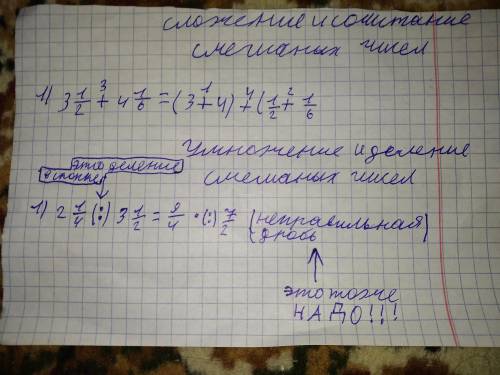 сложение и сочитание
смешаных чисел
1) 3 1/2 +³ 4 1/6 = (3 +¹ 4) +⁴ (1/2 +² 1/6
Умножение и деление
смешаных чисел
это деление
1) 2 1/4 (:) 3 1/2 = 9/4 · (:) 7/2 (неправильная
дробь)
это тоже
НАДО!!!